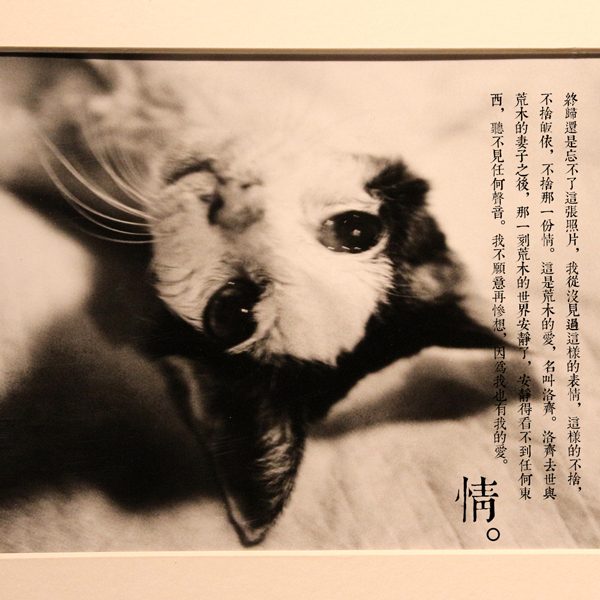 終歸還是忘不了這張照片，我從沒見過這樣的表情，這樣的不捨，
不捨皈依，不捨那一份情。這是荒木的愛，名叫洛齊。洛齊去世與
荒木的妻子之後，那一刻荒木的世界安靜了，安靜得看不到任何東
西，聽不見任何聲音。我不願意再慘想，因為我也有我的愛。
情。